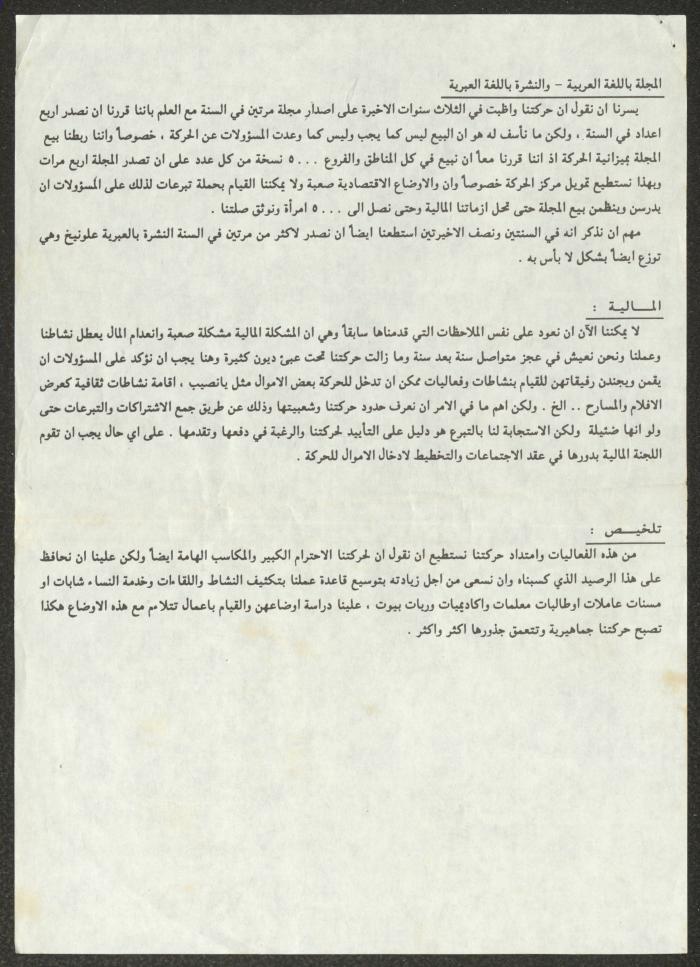 المجلة باللغة العربية – والنشرة باللغة العبرية
يسرنا ان نقول ان حركتنا واظبت في الثلاث سنوات الاخيرة على اصدار مجلة مرتين في السنة مع العلم باننا قررنا ان نصدر اربع
اعداد في السنة ، ولكن ما نأسف له هو ان البيع ليس كما يجب وليس كما وعدت المسؤولات عن الحركة ، خصوصاً واننا ربطنا بيع
المجلة بميزانية الحركة اذ اننا قررنا معاً ان نبيع في كل المناطق والفروع ٥٠٠٠ نسخة من كل عدد على ان تصدر المجلة اربع مرات
وبهذا نستطيع تمويل مركز الحركة خصوصاً وان والاوضاع الاقتصادية صعبة ولا يمكننا القيام بحملة تبرعات لذلك على المسؤولات ان
يدرسن وينظمن بيع المجلة حتى تحل ازماتنا المالية وحتى نصل الى ٥٠٠٠ امرأة ونوثق صلتنا .
مهم ان نذكر انه في السنتين ونصف الاخيرتين استطعنا ايضاً ان نصدر لاكثر من مرتين في السنة النشرة بالعبرية علونيخ وهي
توزع ايضاً بشكل لا بأس به .
المـــالية :
لا يمكننا الآن ان نعود على نفس الملاحظات التي قدمناها سابقاً وهي ان المشكلة المالية مشكلة صعبة وانعدام المال يعطل نشاطنا
وعملنا ونحن نعيش في عجز متواصل سنة بعد سنة وما زالت حركتنا تحت عبئ ديون كثيرة وهنا يجب ان نؤكد على المسؤولات ان
يقمن ويجندن رفيقاتهن للقيام بنشاطات وفعاليات ممكن ان تدخل للحركة بعض الاموال مثل يانصيب ، اقامة نشاطات ثقافية كعرض
الافلام والمسارح .. الخ . ولكن اهم ما في الامر ان نعرف حدود حركتنا وشعبيتها وذلك عن طريق جمع الاشتراكات والتبرعات حتى
ولو انها ضئيلة ولكن الاستجابة لنا بالتبرع هو دليل على التأييد لحركتنا والرغبة في دفعها وتقدمها . على اي حال يجب ان تقوم
اللجنة المالية بدورها في عقد الاجتماعات والتخطيط لادخال الاموال للحركة .
تلخيـــص :
من هذه الفعاليات وامتداد حركتنا نستطيع ان نقول ان لحركتنا الاحترام الكبير والمكاسب الهامة ايضاً ولكن علينا ان نحافظ
على هذا الرصيد الذي كسبناه وان نسعى من اجل زيادته بتوسيع قاعدة عملنا بتكثيف النشاط واللقاءات وخدمة النساء شابات او
مسنات عاملات اوطالبات معلمات واكاديميات وربات بيوت ، علينا دراسة اوضاعهن والقيام باعمال تتلاءم مع هذه الاوضاع هكذا
تصبح حركتنا جماهيرية وتتعمق جذورها اكثر واكثر .